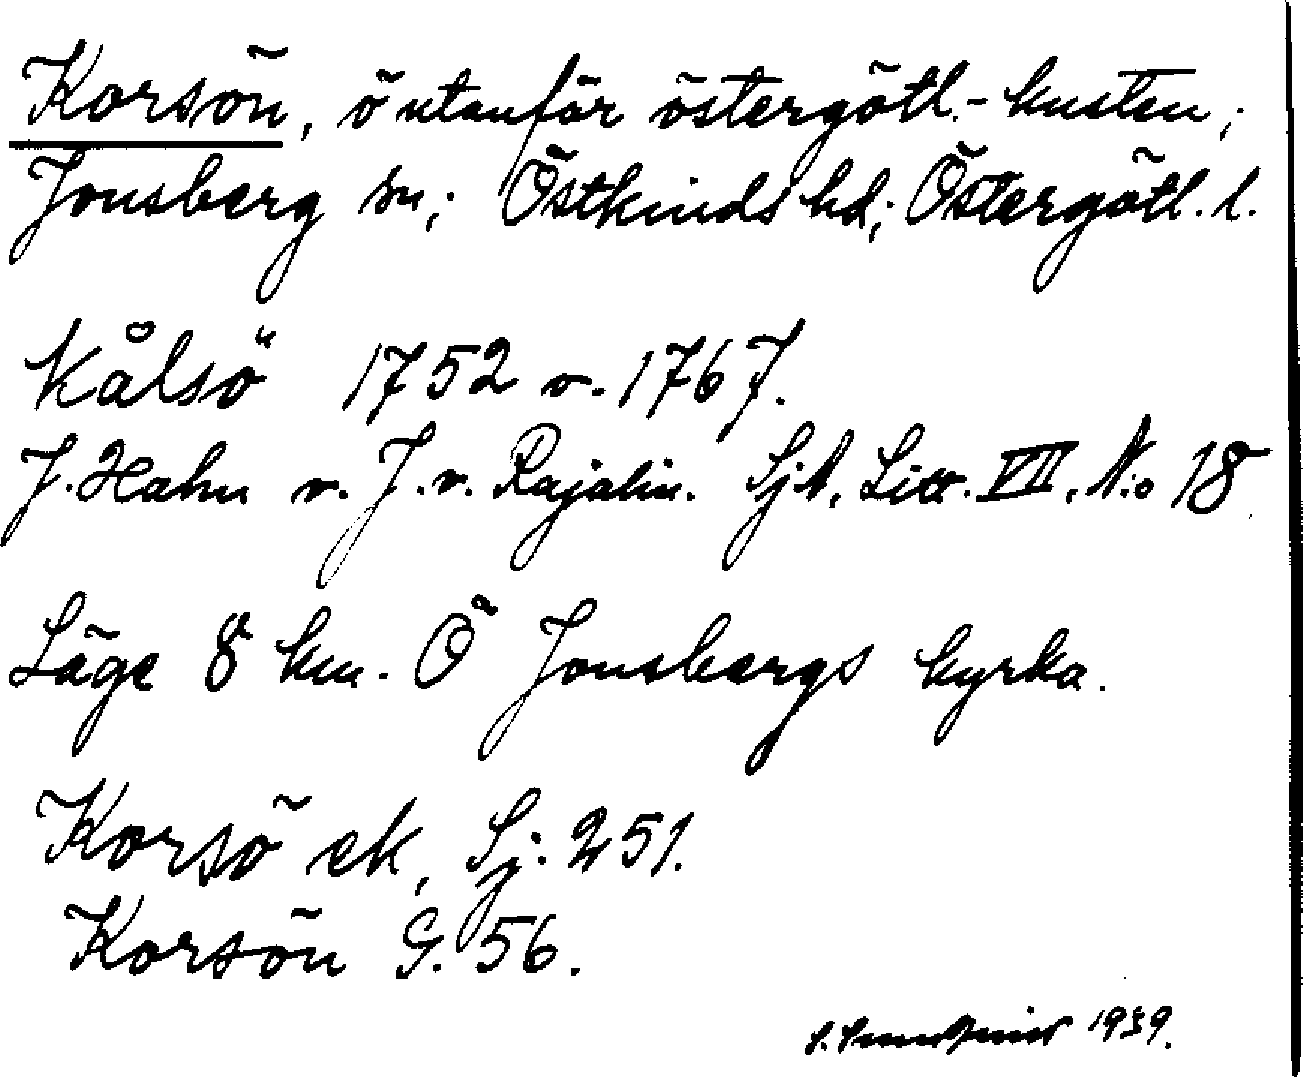 Korsön, ö utanför östergötl.-kusten;
Jonsberg sn; Östkinds hd; Östergötl. l.
Kålsö 1752 o. 1767.
J. Hahn o. J. v. Rajalin. SjA, Litt. VII, N:o 18.
Läge 8 km. Ö Jonsbergs kyrka.
Korsö ek, Sj. 251.
Korsön G. 56.
1939.